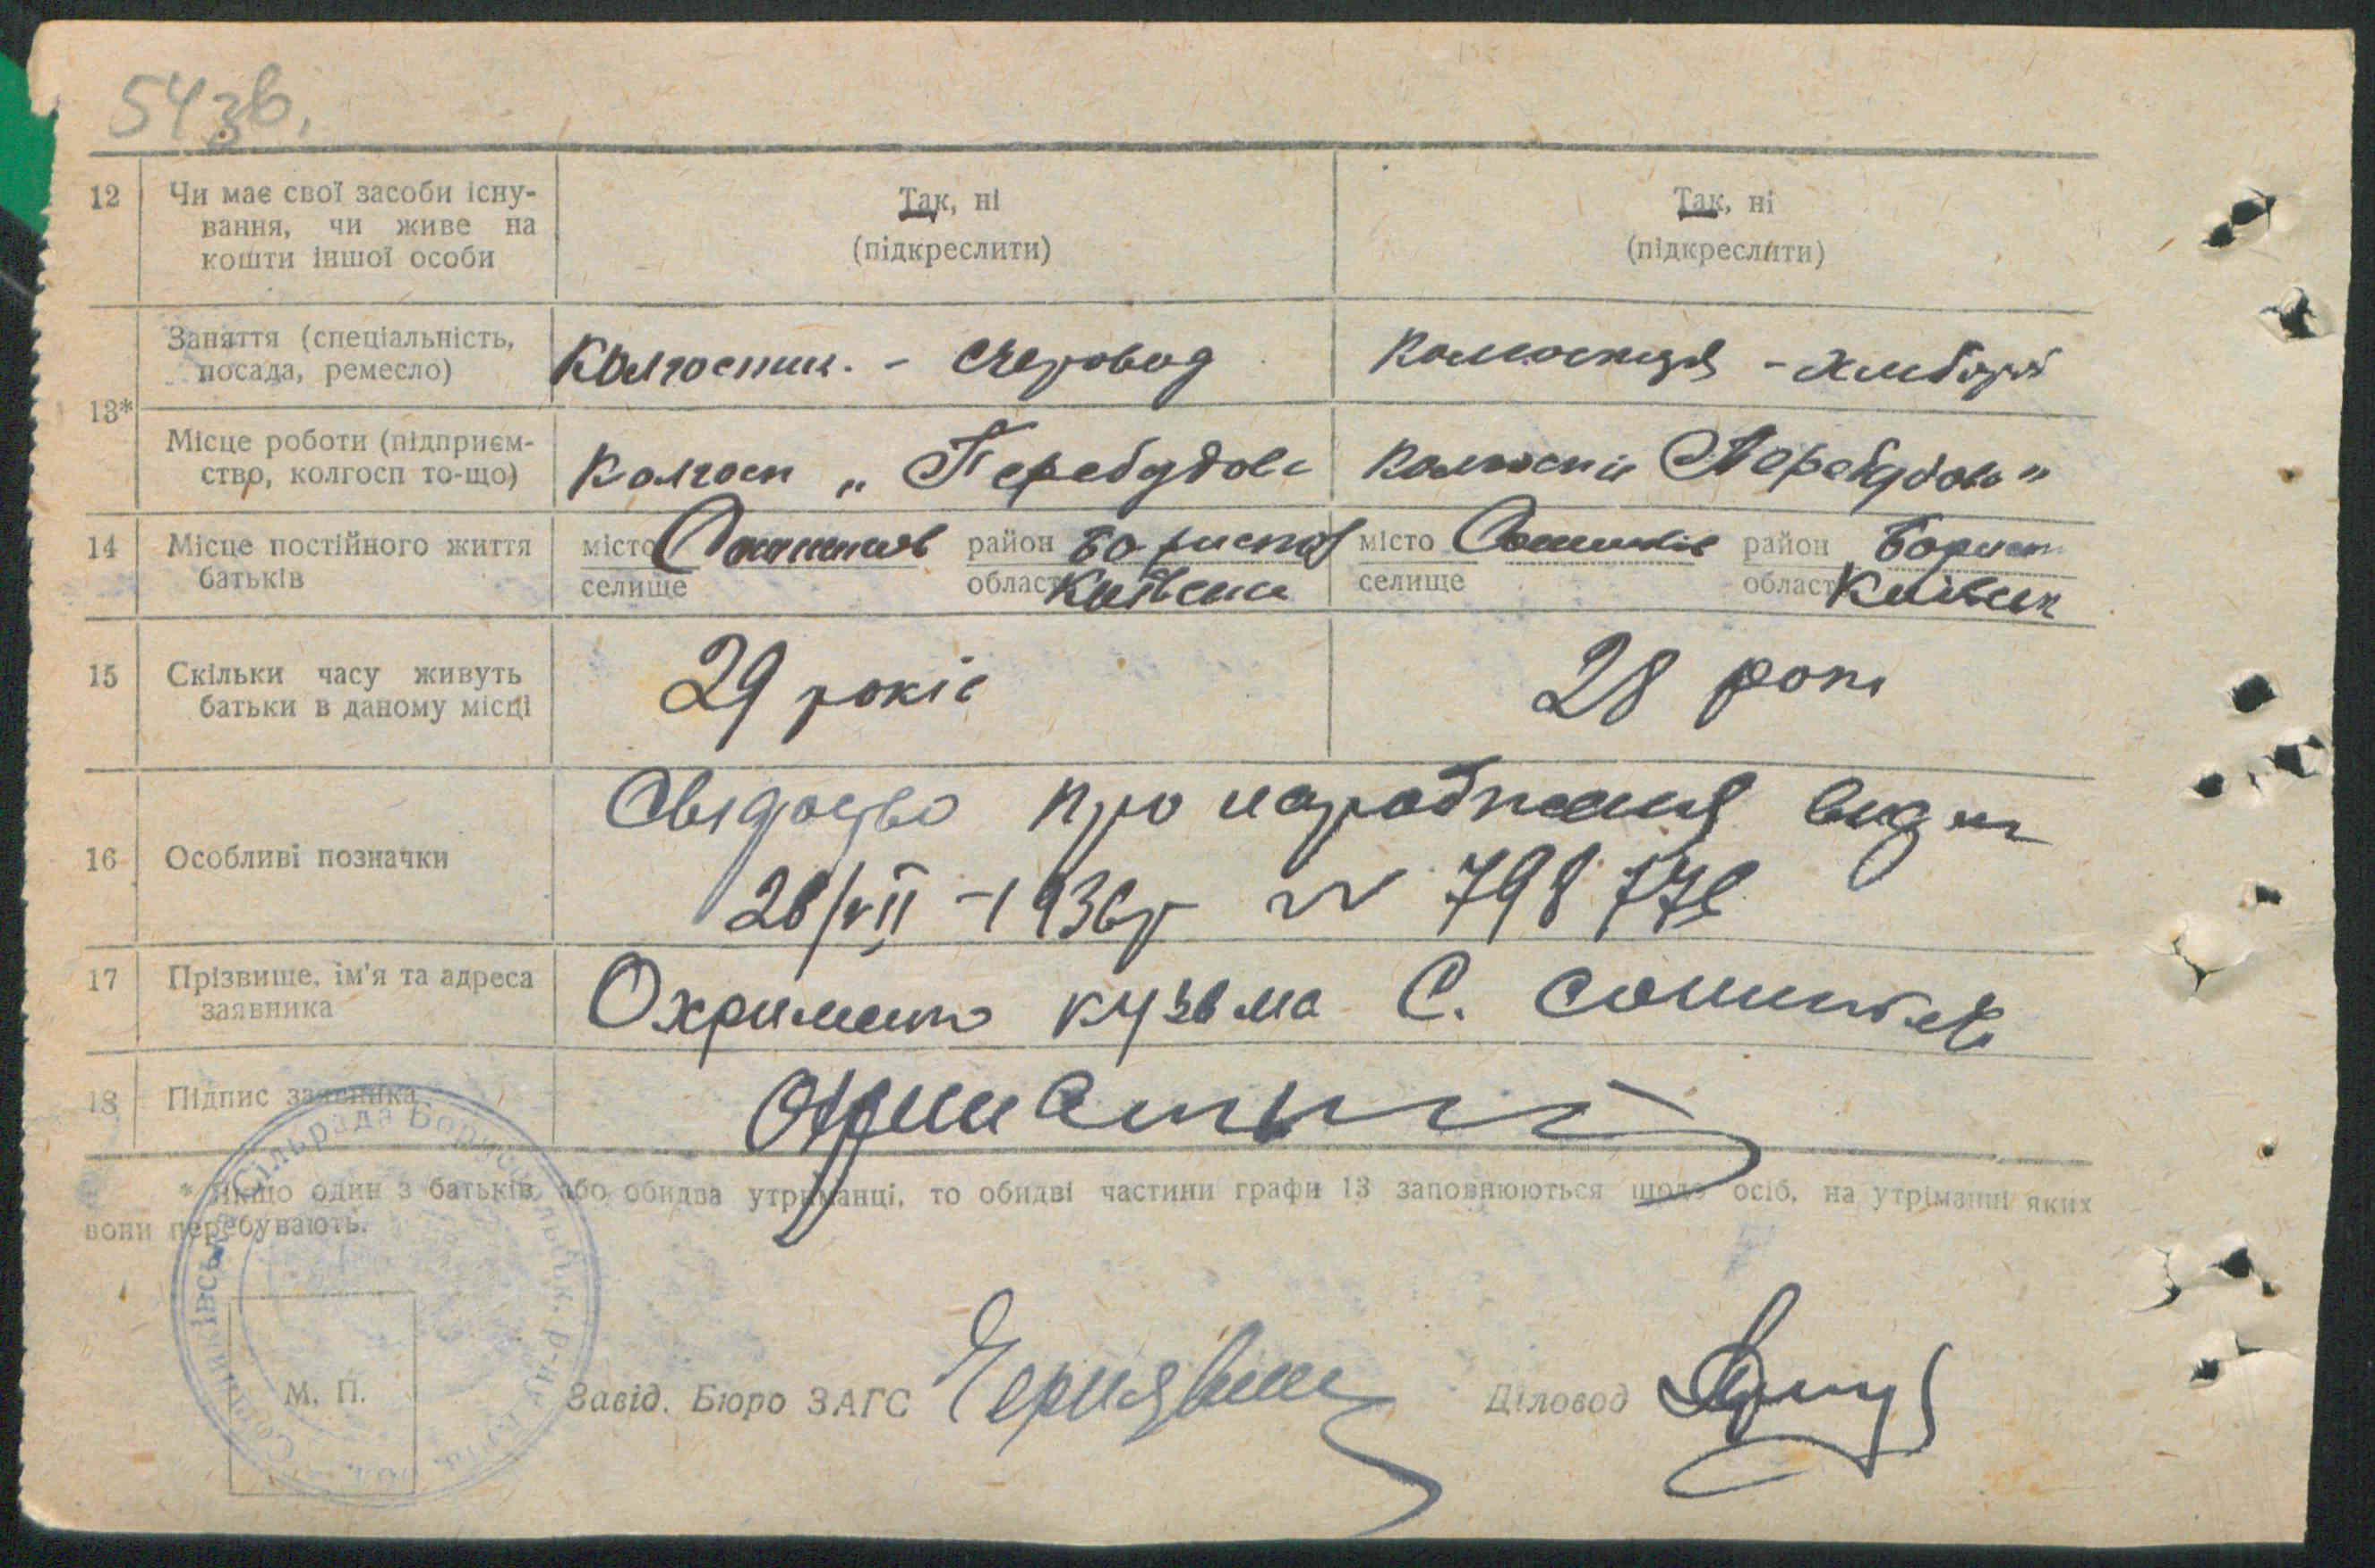 54зв.
12 Чи має свої засоби існу-
вання, чи живе на
кошти іншої особи
Так, ні
(підкреслити)
Так, ні
(підкреслити)
13*
Заняття (спеціальність,
посада, ремесло)
колгоспник. - счетовод
колгоспниця - хлібороб
Місце роботи (підприєм-
ство, колгосп то-що)
колгосп „ Перебудова
колгосп Перебудова"
14 Місце постійного життя
батьків
місто Сошників район Бориспол
селище область Київська
місто Сошників район Борисп
селище область Київськ
15 Скільки часу живуть
батьки в даному місці
29 років
28 років
16 Особливі позначки
Свідоцтво про народження видан
28/VII - 1936р № 798
17 Прізвище, ім'я та адреса
заявника
Охрименко Кузьма С. Сошників
18 Підпис заявника
* Якщо один з батьків, або обидва утриманці, то обидві частини графи 13 заповнюються щодо осіб, на утріманні яких
вони перебувають.
Сошниківська Сільрада Бориспільськ. р-ну
М. П.
Завід. Бюро ЗАГС
Діловод